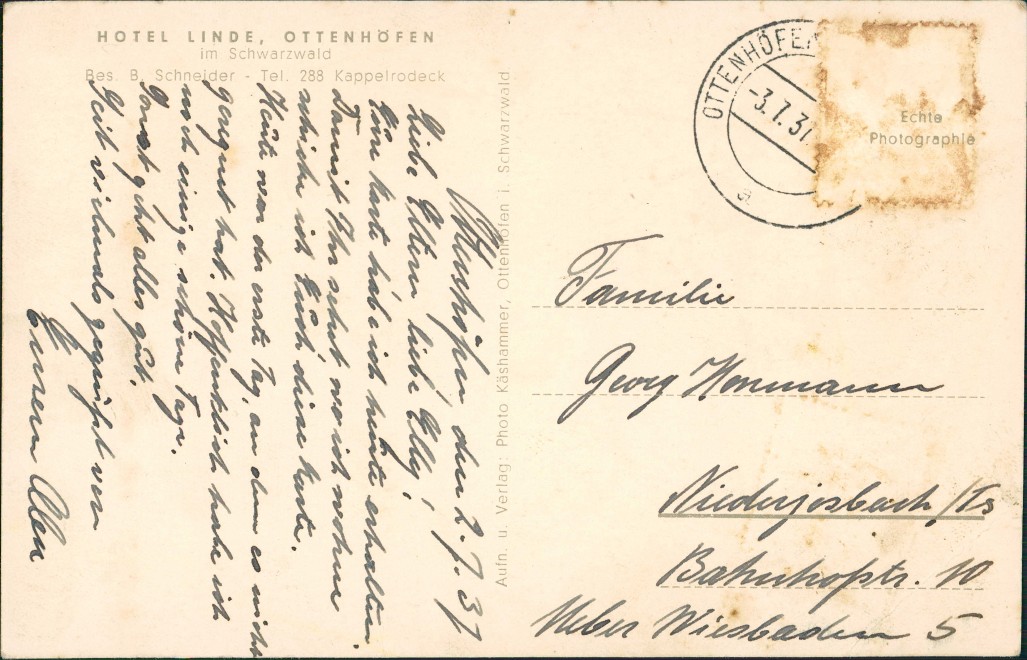 HOTEL LINDE, OTTENHÖFEN
im Schwarzwald
Bes. B. Schneider - Tel. 288 Kappelrodeck
Ottenhöfen, den 2.7.37
Liebe Eltern liebe Elly!
Eure Karte habe ich heute erhalten.
Damit Ihr seht wo ich wohne
schicke ich Euch diese Karte.
Heute war der erste Tag, an dem es nicht
geregnet hat. Hoffentlich habe ich
noch einige schöne Tage.
Sonst geht alles gut.
Seit vielmals gegrüßt von
Eurem
Aufn. u. Verlag: Photo Käshammer, Ottenhöfen i. Schwarzwald
OTTENHÖFEN
-3.7.37
a
Echte
Photographie
Familie
Georg
Niederjosbach/Ts
Bahnhofstr. 10
Ueber Wiesbaden 5